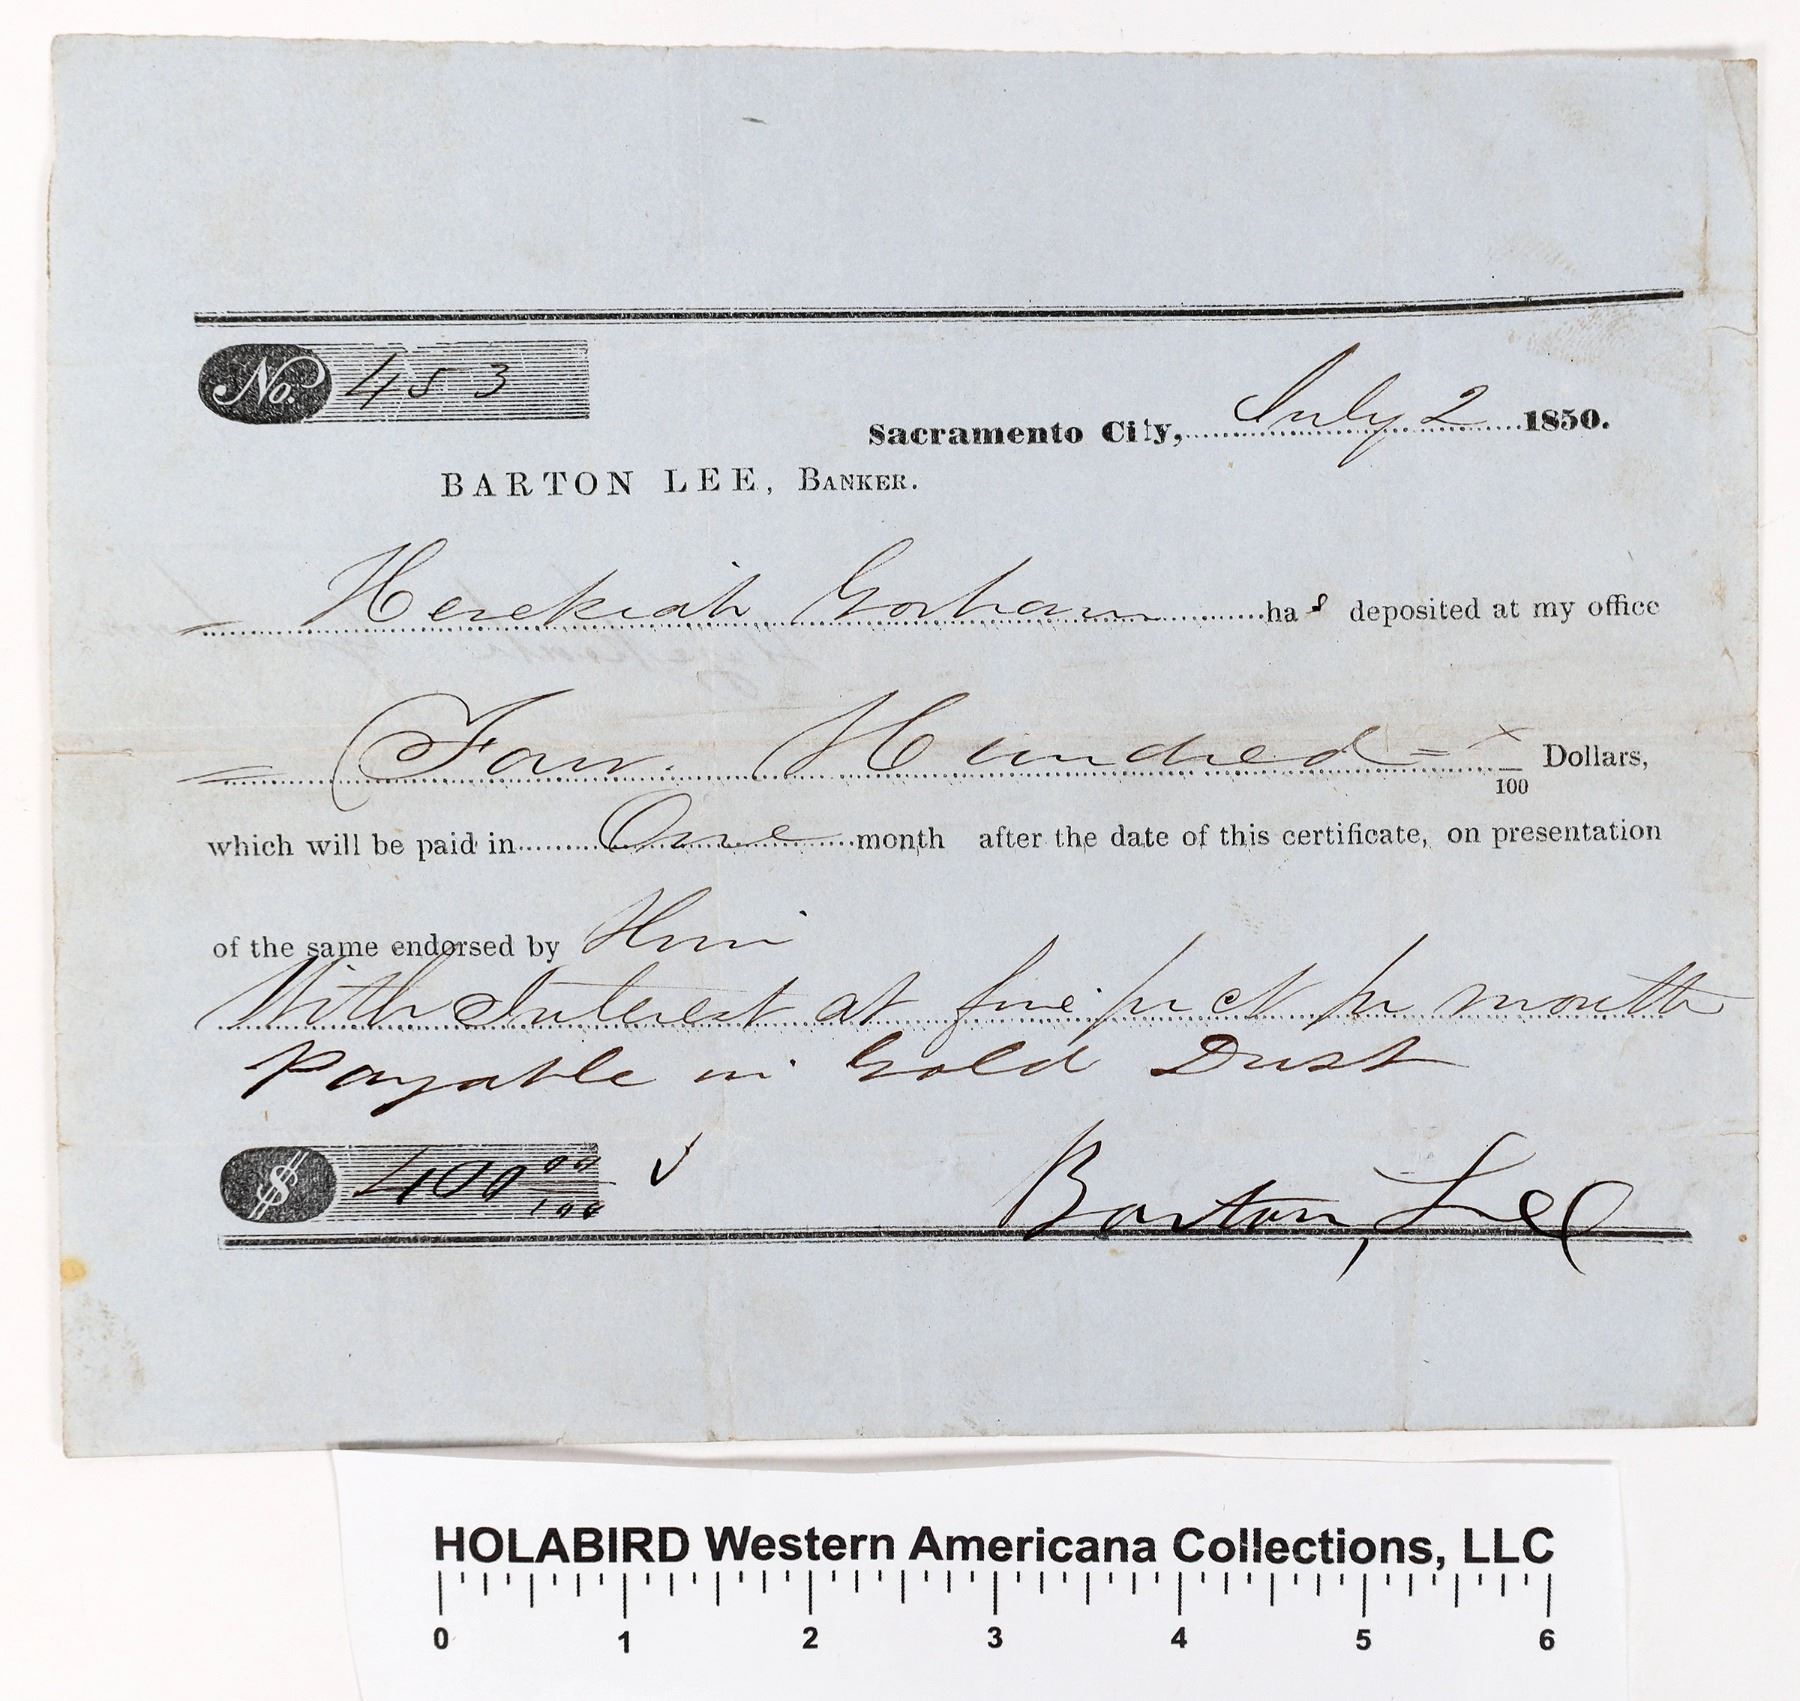 No. 453
Sacramento City, July 2 1850.
BARTON LEE, BANKER.
Hezekiah Gorham has deposited at my office
Four Hundred = x/100 Dollars,
which will be paid in One month after the date of this certificate, on presentation
of the same endorsed by Him
With Interest at five pr ct pr month
Payable in Gold Dust
$ 400 00/100
Barton, Lee
HOLABIRD Western Americana Collections, LLC
0 1 2 3 4 5 6